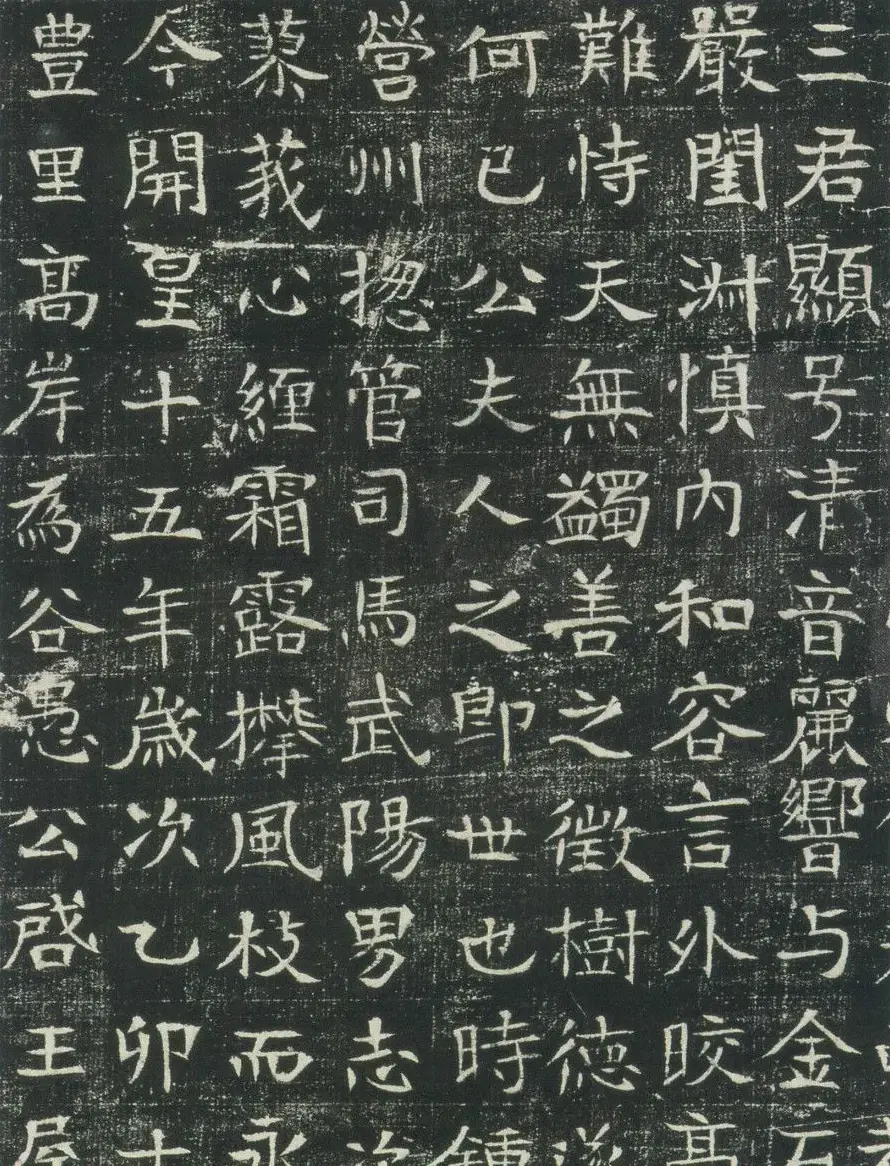 三君顯号清音麗響与金石
嚴閨淑慎內和容言外皎高
難恃天無蠲善之徵樹德
何已公夫人之即世也時鍾
營州揔管司馬武陽男志次
蓼莪心緾霜露攀風枝而永
今開皇十五年歲次乙卯十
豊里高岸為谷愚公啓王屋